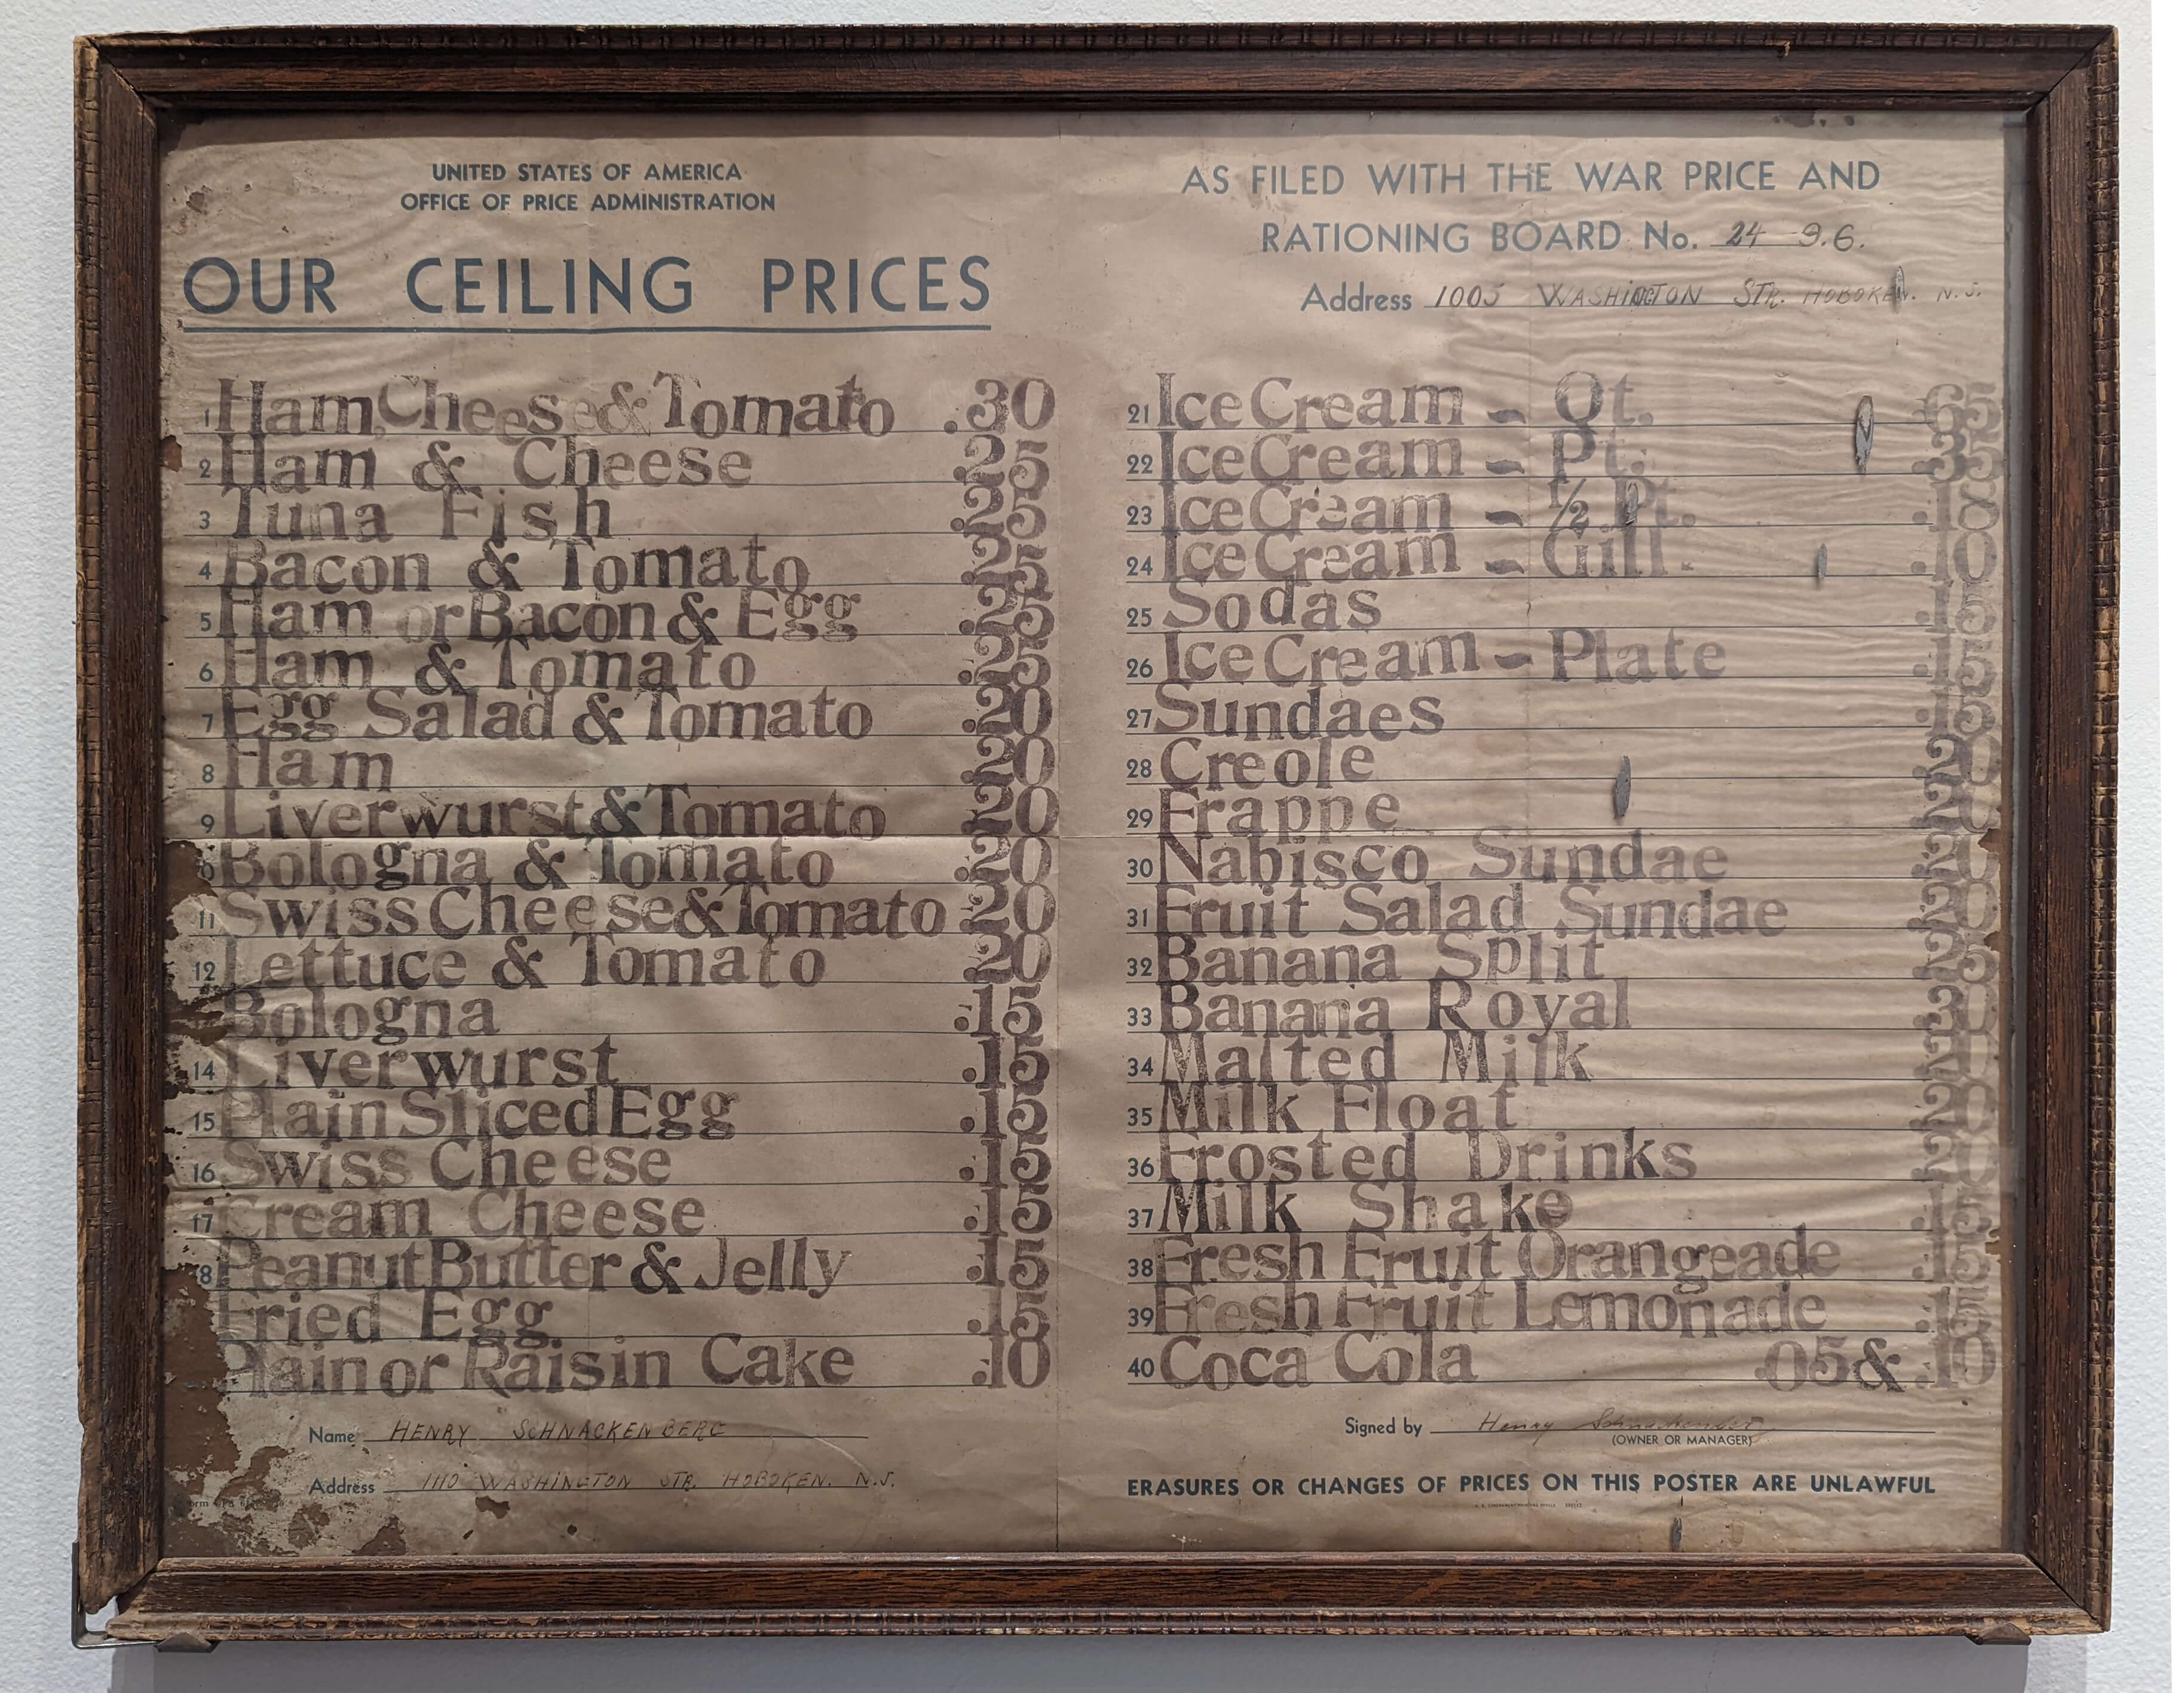 UNITED STATES OF AMERICA
OFFICE OF PRICE ADMINISTRATION
OUR CEILING PRICES
1 Ham, Cheese & Tomato .30
2 Ham & Cheese .25
3 Tuna Fish .25
4 Bacon & Tomato .25
5 Ham or Bacon & Egg .25
6 Ham & Tomato .25
7 Egg Salad & Tomato .20
8 Ham .20
9 Liverwurst & Tomato .20
0 Bologna & Tomato .20
11 Swiss Cheese & Tomato .20
12 Lettuce & Tomato .20
Bologna .15
14 Liverwurst .15
15 Plain Sliced Egg .15
16 Swiss Cheese .15
17 Cream Cheese .15
8 Peanut Butter & Jelly .15
Fried Egg .15
Plain or Raisin Cake .10
Name HENRY SCHNACKENBERG
Address 1110 WASHINGTON STR. HOBOKEN. N.J.
AS FILED WITH THE WAR PRICE AND
RATIONING BOARD No. 24-9.6.
Address 1005 WASHINGTON STR. HOBOKEN. N.J.
21 Ice Cream - Qt. .65
22 Ice Cream - Pt. .35
23 Ice Cream - 1/2 Pt. .18
24 Ice Cream - Gill. .10
25 Sodas .15
26 Ice Cream - Plate .15
27 Sundaes .15
28 Creole .20
29 Frappe .20
30 Nabisco Sundae .20
31 Fruit Salad Sundae .20
32 Banana Split
33 Banana Royal
34 Malted Milk .20
35 Milk Float .20
36 Frosted Drinks .20
37 Milk Shake .15
38 Fresh Fruit Orangeade .15
39 Fresh Fruit Lemonade .15
40 Coca Cola .05 & .10
Signed by Henry Schnackenberg
(OWNER OR MANAGER)
ERASURES OR CHANGES OF PRICES ON THIS POSTER ARE UNLAWFUL